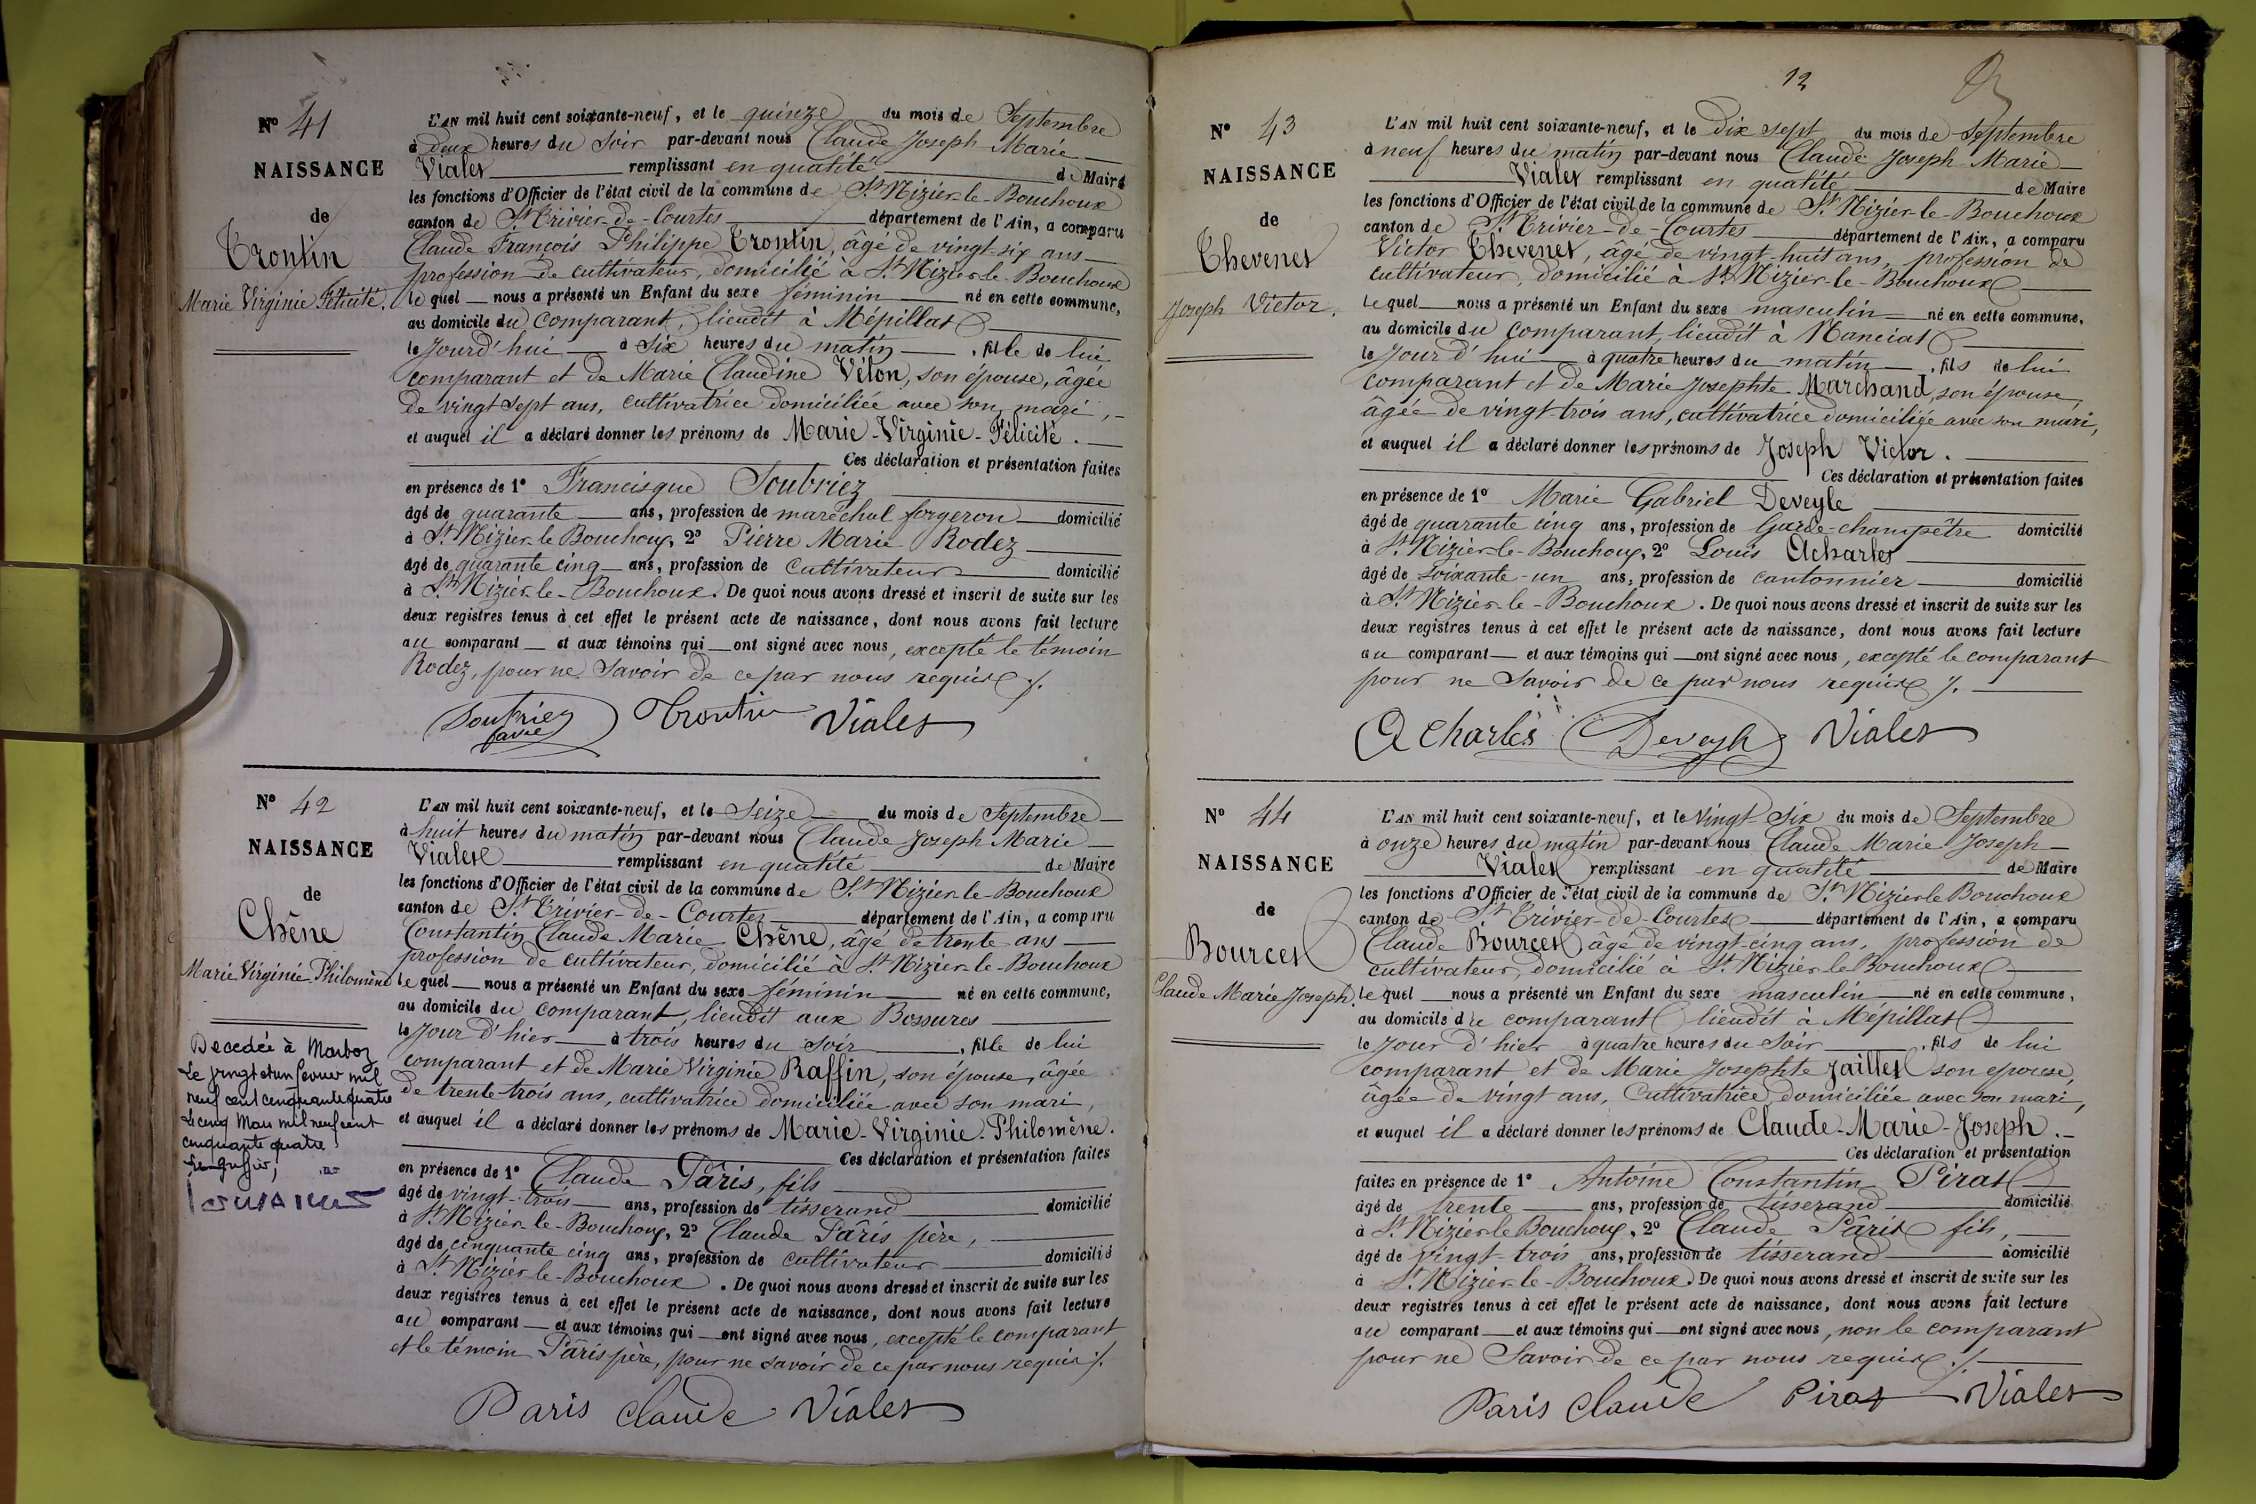 Nº 41
NAISSANCE
de
Trontin
Marie Virginie Félicité.
L'AN mil huit cent soixante-neuf, et le quinze du mois de Septembre
à deux heures du soir par-devant nous Claude Joseph Marie
Vialet remplissant en qualité de Maire
les fonctions d'Officier de l'état civil de la commune de St Nizier-le-Bouchoux
canton de St Trivier-de-Courtes département de l'Ain, a comparu
Claude François Philippe Trontin, âgé de vingt-six ans
profession de cultivateur, domicilié à St Nizier-le-Bouchoux
le quel nous a présenté un Enfant du sexe féminin né en cette commune,
au domicile du comparant, lieudit à Mépillat
le jourd'hui à six heures du matin, fille de lui
comparant et de Marie Claudine Véton, son épouse, âgée
de vingt sept ans, cultivatrice domiciliée avec son mari,
et auquel il a déclaré donner les prénoms de Marie-Virginie-Félicité.
Ces déclaration et présentation faites
en présence de 1º Francisque Soubriez
âgé de quarante ans, profession de maréchal forgeron domicilié
à St Nizier-le-Bouchoux, 2º Pierre Marie Rodez
âgé de quarante cinq ans, profession de cultivateur domicilié
à St Nizier-le-Bouchoux. De quoi nous avons dressé et inscrit de suite sur les
deux registres tenus à cet effet le présent acte de naissance, dont nous avons fait lecture
au comparant et aux témoins qui ont signé avec nous, excepté le témoin
Rodez, pour ne savoir de ce par nous requis ./.
Soubriez Trontin Vialet
Nº 42
NAISSANCE
de
Chêne
Marie Virginie Philomène
Decedée à Marboz
Le vingt et un fevrier mil
neuf cent cinquante quatre
Le cinq Mars mil neuf cent
cinquante quatre
Le Greffier,
L'AN mil huit cent soixante-neuf, et le seize du mois de Septembre
à huit heures du matin par-devant nous Claude Joseph Marie
Vialet remplissant en qualité de Maire
les fonctions d'Officier de l'état civil de la commune de St Nizier-le-Bouchoux
canton de St Trivier-de-Courtes département de l'Ain, a comparu
Constantin Claude Marie Chêne, âgé de trente ans
profession de cultivateur, domicilié à St Nizier-le-Bouchoux
le quel nous a présenté un Enfant du sexe féminin né en cette commune,
au domicile du comparant, lieudit aux Bossures
le jour d'hier à trois heures du soir, fille de lui
comparant et de Marie Virginie Raffin, son épouse, âgée
de trente trois ans, cultivatrice domiciliée avec son mari,
et auquel il a déclaré donner les prénoms de Marie-Virginie-Philomène.
Ces déclaration et présentation faites
en présence de 1º Claude Pâris, fils
âgé de vingt-trois ans, profession de tisserand domicilié
à St Nizier-le-Bouchoux, 2º Claude Pâris père,
âgé de cinquante cinq ans, profession de cultivateur domicilié
à St Nizier-le-Bouchoux. De quoi nous avons dressé et inscrit de suite sur les
deux registres tenus à cet effet le présent acte de naissance, dont nous avons fait lecture
au comparant et aux témoins qui ont signé avec nous, excepté le comparant
et le témoin Pâris père, pour ne savoir de ce par nous requis ./.
Paris Claude Vialet
12
Nº 43
NAISSANCE
de
Thevenet
Joseph Victor.
L'AN mil huit cent soixante-neuf, et le dix sept du mois de septembre
à neuf heures du matin par-devant nous Claude Joseph Marie
Vialet remplissant en qualité de Maire
les fonctions d'Officier de l'état civil de la commune de St Nizier-le-Bouchoux
canton de St Trivier-de-Courtes département de l'Ain, a comparu
Victor Thevenet, âgé de vingt-huit ans, profession de
cultivateur, domicilié à St Nizier-le-Bouchoux
le quel nous a présenté un Enfant du sexe masculin né en cette commune,
au domicile du comparant, lieudit à Manciat
le jour d'hui à quatre heures du matin, fils de lui
comparant et de Marie Josephte Marchand, son épouse,
âgée de vingt-trois ans, cultivatrice domiciliée avec son mari,
et auquel il a déclaré donner les prénoms de Joseph Victor.
Ces déclaration et présentation faites
en présence de 1º Marie Gabriel Deveyle
âgé de quarante cinq ans, profession de Garde-champêtre domicilié
à St Nizier-le-Bouchoux, 2º Louis Acharles
âgé de soixante-un ans, profession de cantonnier domicilié
à St Nizier-le-Bouchoux. De quoi nous avons dressé et inscrit de suite sur les
deux registres tenus à cet effet le présent acte de naissance, dont nous avons fait lecture
au comparant et aux témoins qui ont signé avec nous, excepté le comparant
pour ne savoir de ce par nous requis ./.
Acharles Deveyle Vialet
Nº 44
NAISSANCE
de
Bourcet
Claude Marie Joseph.
L'AN mil huit cent soixante-neuf, et le vingt six du mois de Septembre
à onze heures du matin par-devant nous Claude Marie Joseph
Vialet remplissant en qualité de Maire
les fonctions d'Officier de l'état civil de la commune de St Nizier le Bouchoux
canton de St Trivier-de-Courtes département de l'Ain, a comparu
Claude Bourcet âgé de vingt-cinq ans, profession de
cultivateur, domicilié à St Nizier le Bouchoux
le quel nous a présenté un Enfant du sexe masculin né en cette commune,
au domicile du comparant lieudit à Mépillat
le jour d'hier à quatre heures du soir, fils de lui
comparant et de Marie Josephte Jaillet son épouse,
âgée de vingt ans, cultivatrice, domiciliée avec son mari,
et auquel il a déclaré donner les prénoms de Claude-Marie-Joseph.
Ces déclaration et présentation
faites en présence de 1º Antoine Constantin Pirat
âgé de trente ans, profession de tisserand domicilié
à St Nizier le Bouchoux, 2º Claude Pâris fils,
âgé de vingt-trois ans, profession de tisserand domicilié
à St Nizier-le-Bouchoux. De quoi nous avons dressé et inscrit de suite sur les
deux registres tenus à cet effet le présent acte de naissance, dont nous avons fait lecture
au comparant et aux témoins qui ont signé avec nous, non le comparant
pour ne savoir de ce par nous requis ./.
Paris Claude Pirat Vialet